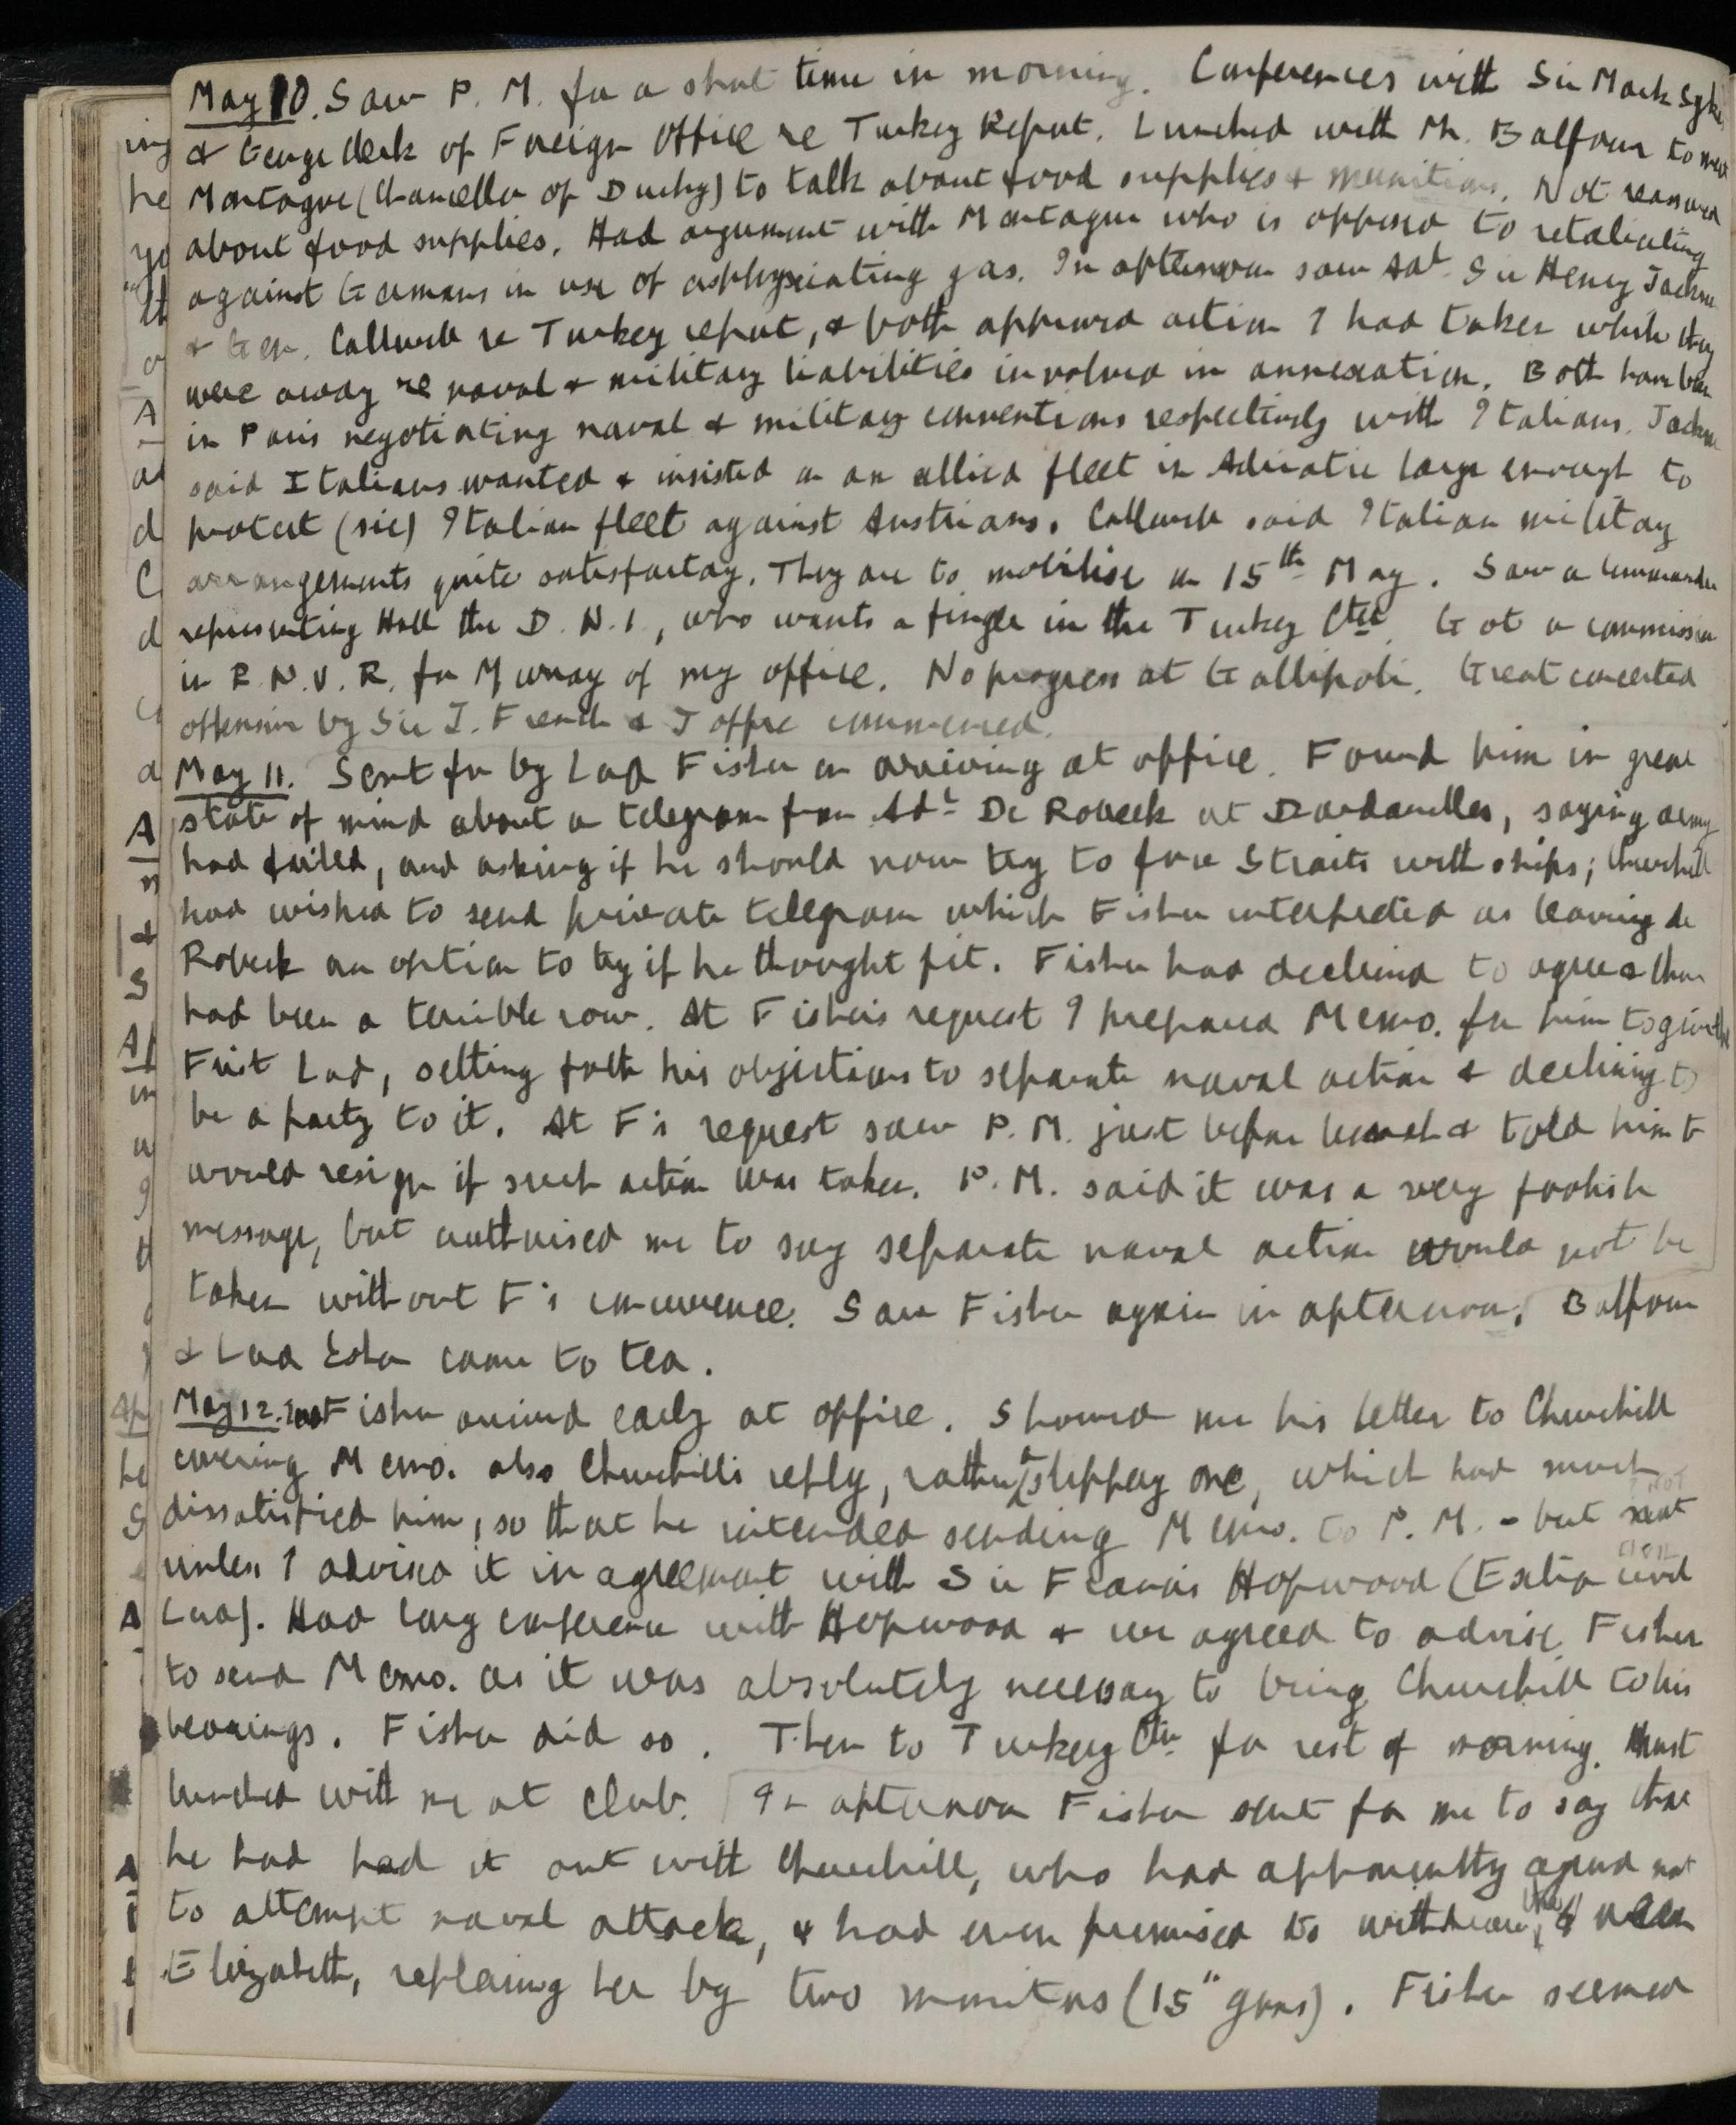 May 10. Saw P. M. for a short time in morning. Conferences with Sir Mark Sykes
& George Clerk of Foreign Office re Turkey Report. Lunched with Mr. Balfour to meet
Montague (Chancellor of Duchy) to talk about food supplies & munitions. Not reassured
about food supplies. Had argument with Montague who is opposed to retaliating
against Germans in use of asphyxiating gas. In afternoon saw Adl. Sir Henry Jackson
& Gen. Callwell re Turkey report, & both approved action I had taken while they
were away re naval & military liabilities involved in annexation. Both have been
in Paris negotiating naval & military conventions respectively with Italians. Jackson
said Italians wanted & insisted on an allied fleet in Adriatic large enough to
protect (sic) Italian fleet against Austrians. Callwell said Italian military
arrangements quite satisfactory. They are to mobilise on 15th May. Saw a Commander
representing Hall the D. N. I, who wants a finger in the Turkey Ctee. Got a commission
in R. N. V. R. for Murray of my office. No progress at Gallipoli. Great concerted
offensive by Sir J. French & Joffre commenced.
May 11. Sent for by Lord Fisher on arriving at office. Found him in great
state of mind about a telegram from Adl. De Robeck at Dardanelles, saying army
had failed, and asking if he should now try to force Straits with ships; Churchill
had wished to send private telegram which Fisher interpreted as leaving de
Robeck an option to try if he thought fit. Fisher had declined to agree & there
had been a terrible row. At Fisher's request I prepared Memo. for him to give the
First Lord, setting forth his objections to separate naval action & declining to
be a party to it. At F's request saw P. M. just before lunch & told him F
would resign if such action was taken. P. M. said it was a very foolish
message, but authorised me to say separate naval action would not be
taken without F's concurrence. Saw Fisher again in afternoon. Balfour
& Lord Esher came to tea.
May 12. Lord Fisher arrived early at office. Showed me his letter to Churchill
covering Memo. also Churchill's reply, rather a slippery one, which had much
dissatisfied him, so that he intended sending Memo. to P. M. - but not
unless I advised it in agreement with Sir Francis Hopwood (Extra Civil
Lord). Had long conference with Hopwood & we agreed to advise Fisher
to send Memo. as it was absolutely necessary to bring Churchill to his
bearings. Fisher did so. Then to Turkey Ctee for rest of morning.
lunched with me at club. In afternoon Fisher sent for me to say that
he had had it out with Churchill, who had apparently agreed not
to attempt naval attack, & had even promised to withdraw the Queen
Elizabeth, replacing her by two monitors (15" guns). Fisher seemed